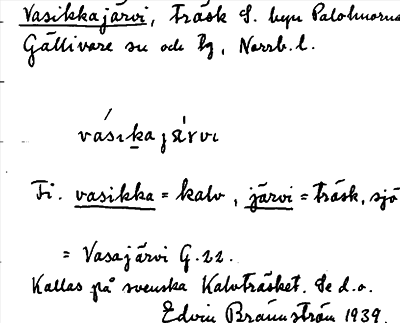 Vasikkajärvi, träsk S. byn Palohuorna
Gällivare sn och tg, Norrb. l.
vásikajärvi
Fi. vasikka = kalv, järvi = träsk, sjö
= Vasajärvi G.22.
Kallas på svenska Kalvträsket. Se d.o.
Edvin Brännström 1939.